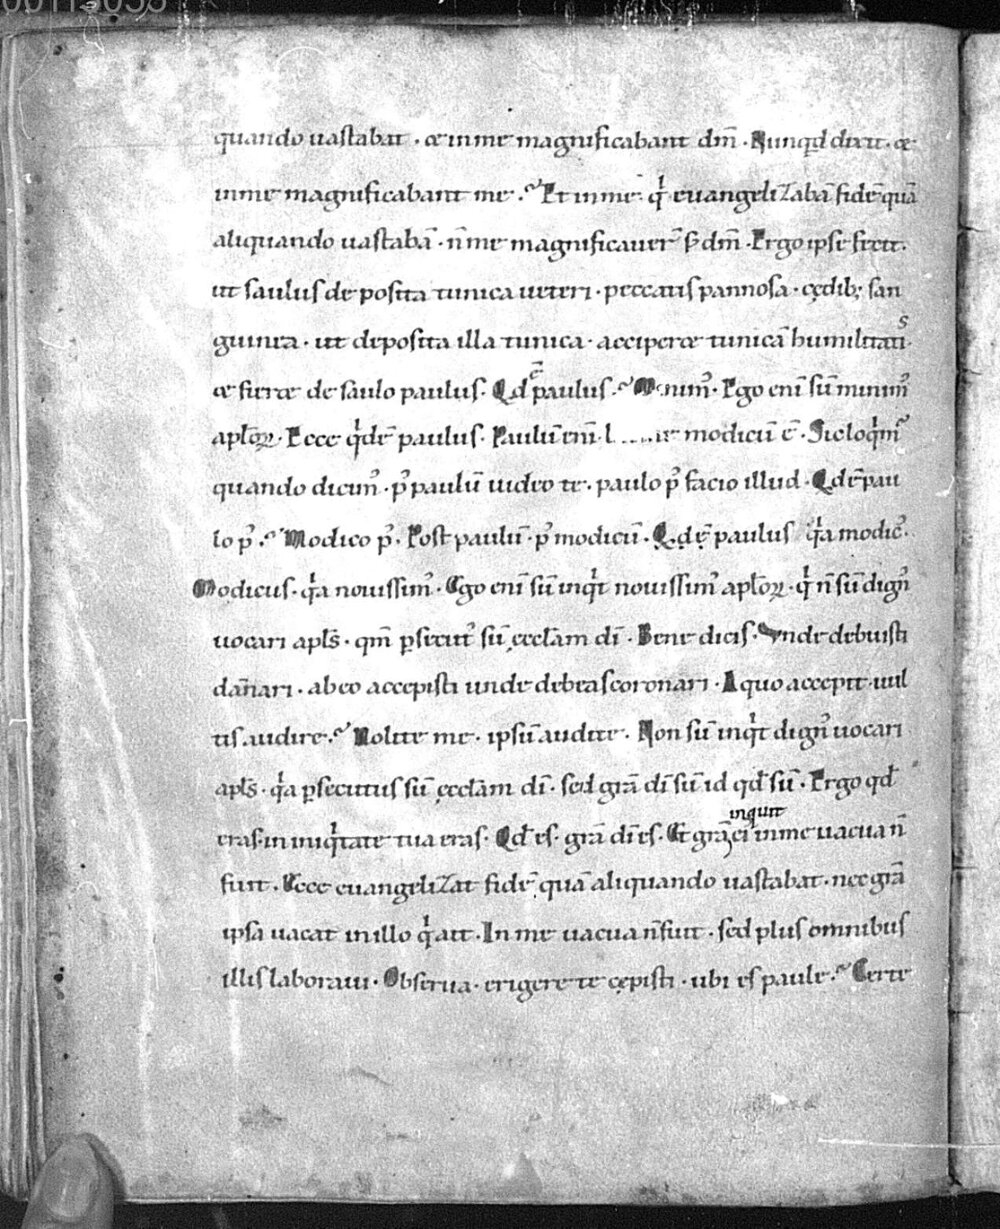 00113055
quando uastabat · & inme magnificabant dm̄ · Nunqd dixit · &
inme magnificabant me · Et inme · qͥ euangelizabā fidē quā
aliquando uastabā · n̄ me magnificauer̄ s; dm̄ · Ergo ipse fecit ·
ut saulus deposita tunica ueteri · peccatis pannosa · cędib; san
guinea · ut deposita illa tunica · acciper& tunicā humilitatis ·
& fier& de saulo paulus · Qd ē paulus · Minimꝰ · Ego eni̅ sū minimꝰ
aplo̅ꝝ · Ecce qͥd ē paulus · Paulū eni̅ modicū ē · Sic loqͥmꝰ
quando dicimꝰ · pꝰ paulū uideo te · paulo pꝰ facio illud · Qd ē pau
lo pꝰ · Modico pꝰ · Post paulū · pꝰ modicū · Q̣ḍ ẹ̄ paulus qͥa modicꝰ ·
Modicus · qͥa nouissimꝰ · Ego eni̅ sū inqͥt nouissimꝰ aplo̅ꝝ · qͥ n̄ sū dignꝰ
uocari apl̅s · qm̄ ꝑsecutꝰ sū ęccl̅am dī · Bene dicis · Vnde debuisti
dānari · ab eo accepisti unde debeas coronari · A quo accepit · uul
tis audire · Nolite me · ipsū audite · Non sū inqͥt dignꝰ uocari
apl̅s · qͥa ꝑsecutus sū ęccl̅am dī · sed grā dī sū id qd̄ sū · Ergo qd̄
eras · in iniqͥtate tua eras · Qd̄ es · grā dī es · Et grā inquit ei inme uacua n̄
fuit · Ecce euangelizat fidē quā aliquando uastabat · nec grā
ipsa uacat in illo qͥ ait · In me uacua n̄ fuit · sed plus omnibus
illis laboraui · Obserua · erigere te cępisti · ubi es paule · Certe